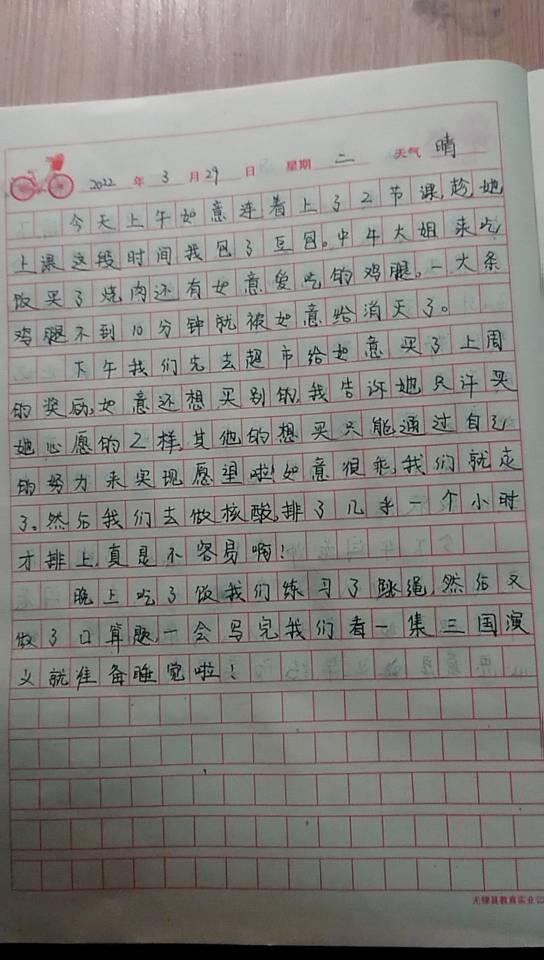 2022 年 3 月 29 日 星期 二 天气 晴
今天上午如意连着上了2节课,趁她
上课这段时间我包了豆包。中午大姐来吃
饭买了烧肉还有如意爱吃的鸡腿。一大条
鸡腿不到10分钟就被如意给消灭了。
下午我们先去超市给如意买了上周
的奖励,如意还想买别的,我告诉她只许买
她心愿的2样,其他的想买只能通过自己
的努力来实现愿望啦!如意很乖,我们就走
了。然后我们去做核酸,排了几乎一个小时
才排上,真是不容易啊!
晚上吃了饭我们练习了跳绳,然后又
做了口算题,一会写完我们看一集三国演
义就准备睡觉啦!
无棣县教育实业公